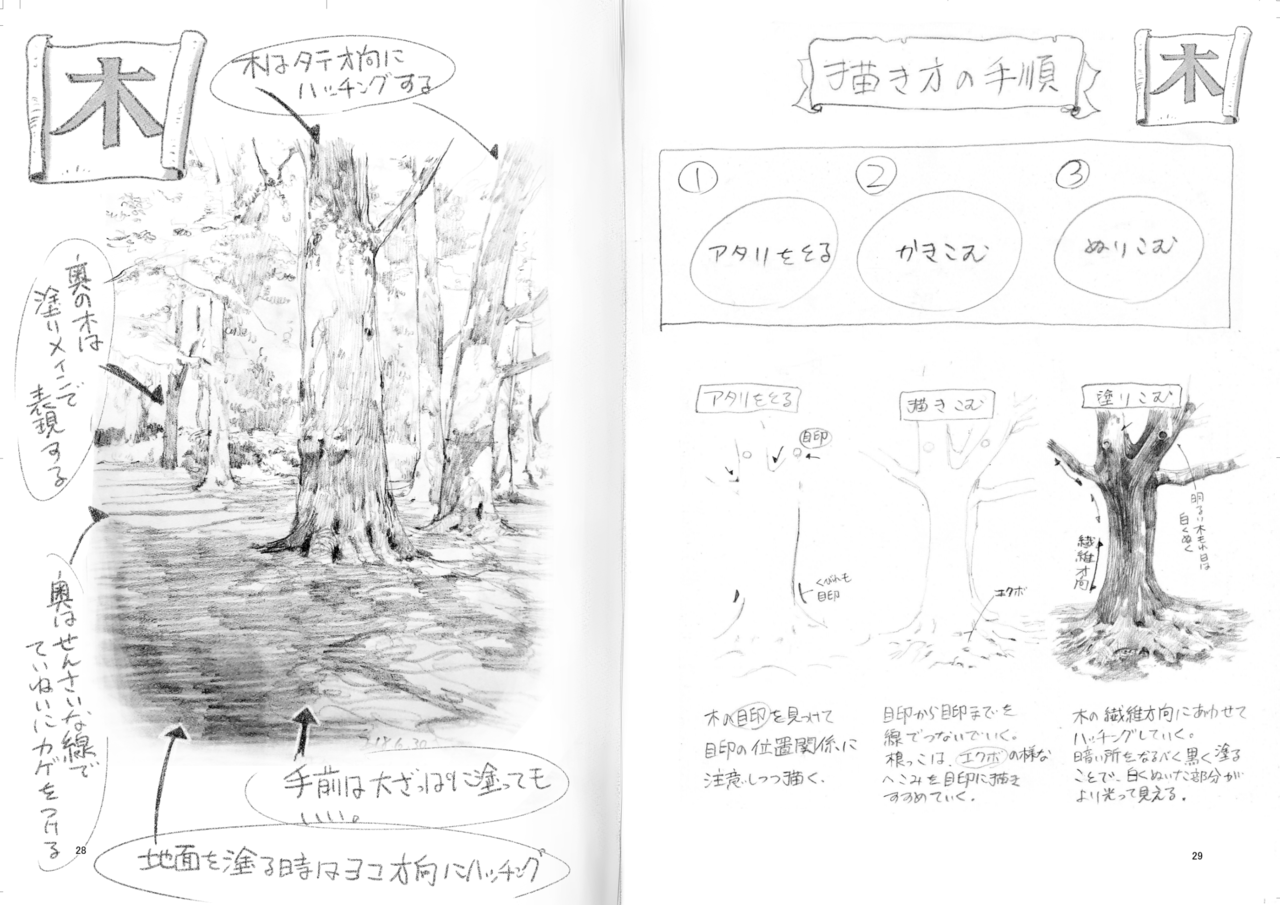 木
木はタテ方向に
ハッチングする
奥の木は
塗りメインで
表現する
奥はせんさいな線で
ていねいにカゲをつける
手前は大ざっぱに塗っても
いい。
地面を塗る時はヨコ方向にハッチング
28
描き方の手順
木
①
アタリをとる
②
かきこむ
③
ぬりこむ
アタリをとる
目印
くびれも
目印
木の目印を見つけて
目印の位置関係に
注意しつつ描く。
描きこむ
エクボ
目印から目印までを
線でつないでいく。
根っこは、エクボの様な
へこみを目印に描き
すすめていく。
塗りこむ
明るい木もれ日は
白くぬく
繊維方向
木の繊維方向にあわせて
ハッチングしていく。
暗い所をなるべく黒く塗る
ことで、白くぬいた部分が
より光って見える。
29